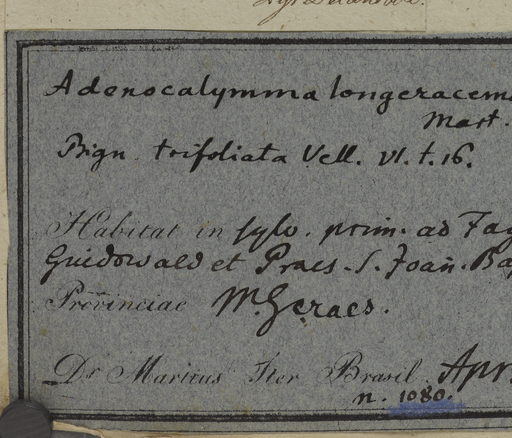 Adenocalymma longeracemo
Mart.
Bign. trifoliata Vell. VI. t. 16.
Habitat in sylv. prim. ad Fag
Guidowald et Praes. S. Joañ. Bap
Provinciae M. Geraes.
Dr Martius Iter Brasil. Apr.
n. 1080.